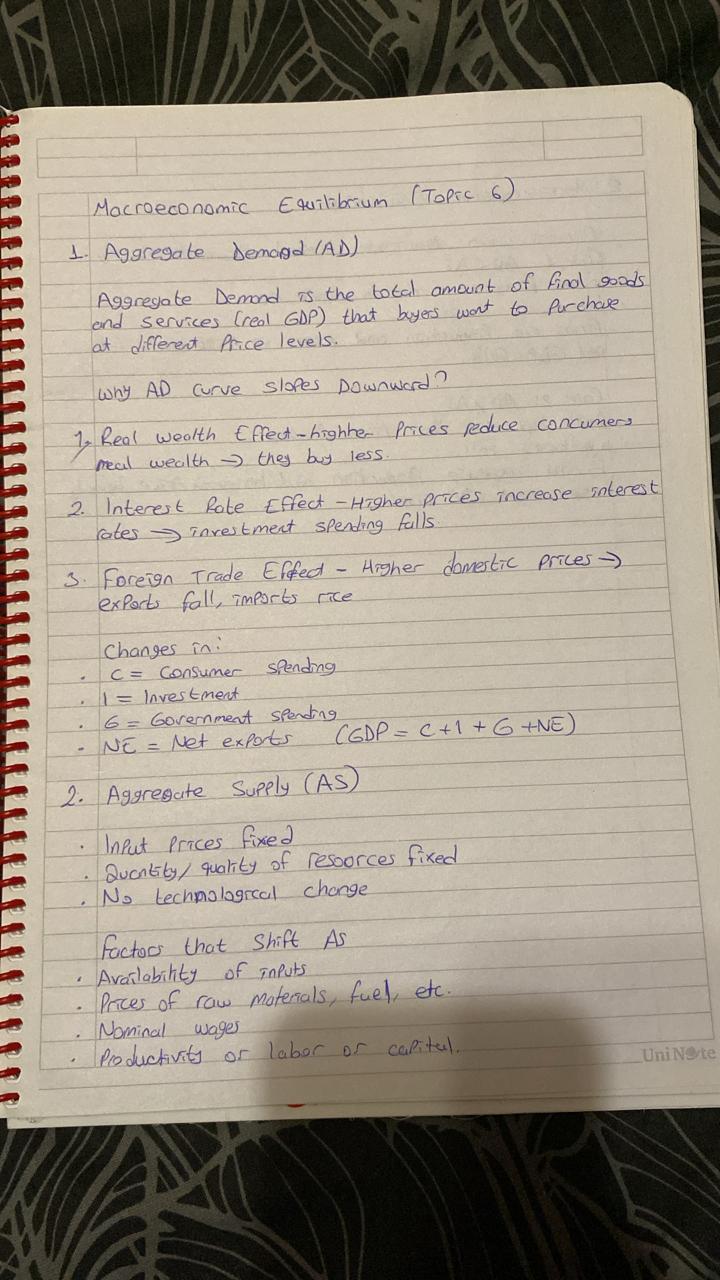 Macroeconomic Equilibrium (Topic 6)
1. Aggregate Demand (AD)
Aggregate Demand is the total amount of final goods
and services (real GDP) that buyers want to Purchase
at different Price levels.
why AD curve slopes Downward?
1, Real wealth Effect - highher Prices reduce concumers
real wealth → they buy less.
2. Interest Rate Effect - Higher prices increase interest
rates → investment spending falls
3. Foreign Trade Effect - Higher domestic prices →
exports fall, imports rice
Changes in:
. C = Consumer spending
. I = Investment
. G = Government spending
. NE = Net exports (GDP = C + I + G + NE)
2. Aggregate Supply (AS)
. Input Prices fixed
. Quantity/ quality of resoorces fixed
. No technological change
Factors that Shift AS
. Availability of inputs
. Prices of raw Materials, fuel, etc.
. Nominal wages
. Productivity or labor or capital.
UniNote